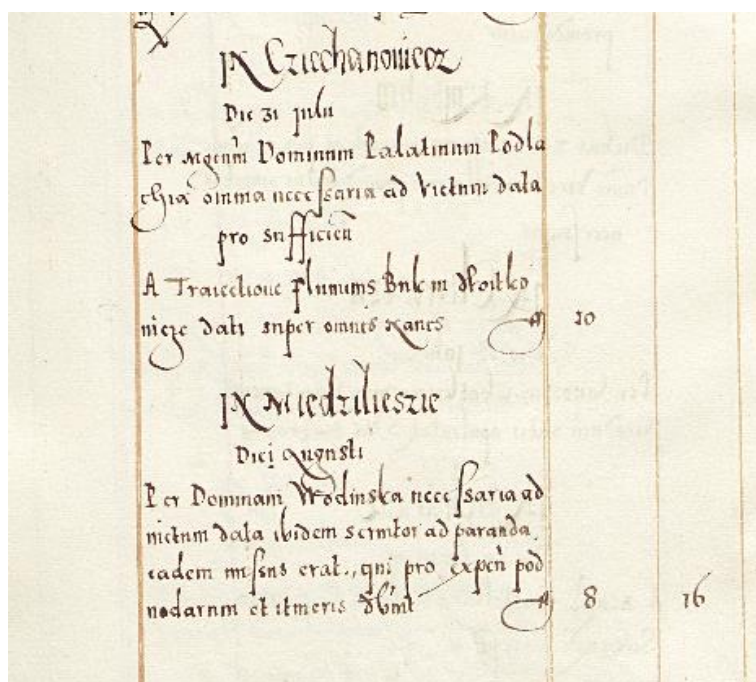 IN Cziechanowiecz
Die 31 Julii
Per Mgcum̅ Dominum Palatinum Podla
chiæ omnia necessaria ad victum data
pro sufficien̅
A Traiectione fluminis Buk in
nicze dati super omnes 10
IN Miedzilieszie
Die j Augusti
Per Dominam Wodinska necessaria ad
victum data ibidem servitor ad paranda
eadem missus erat, qui pro expen̅ pod
vodarum et itineris 8 16